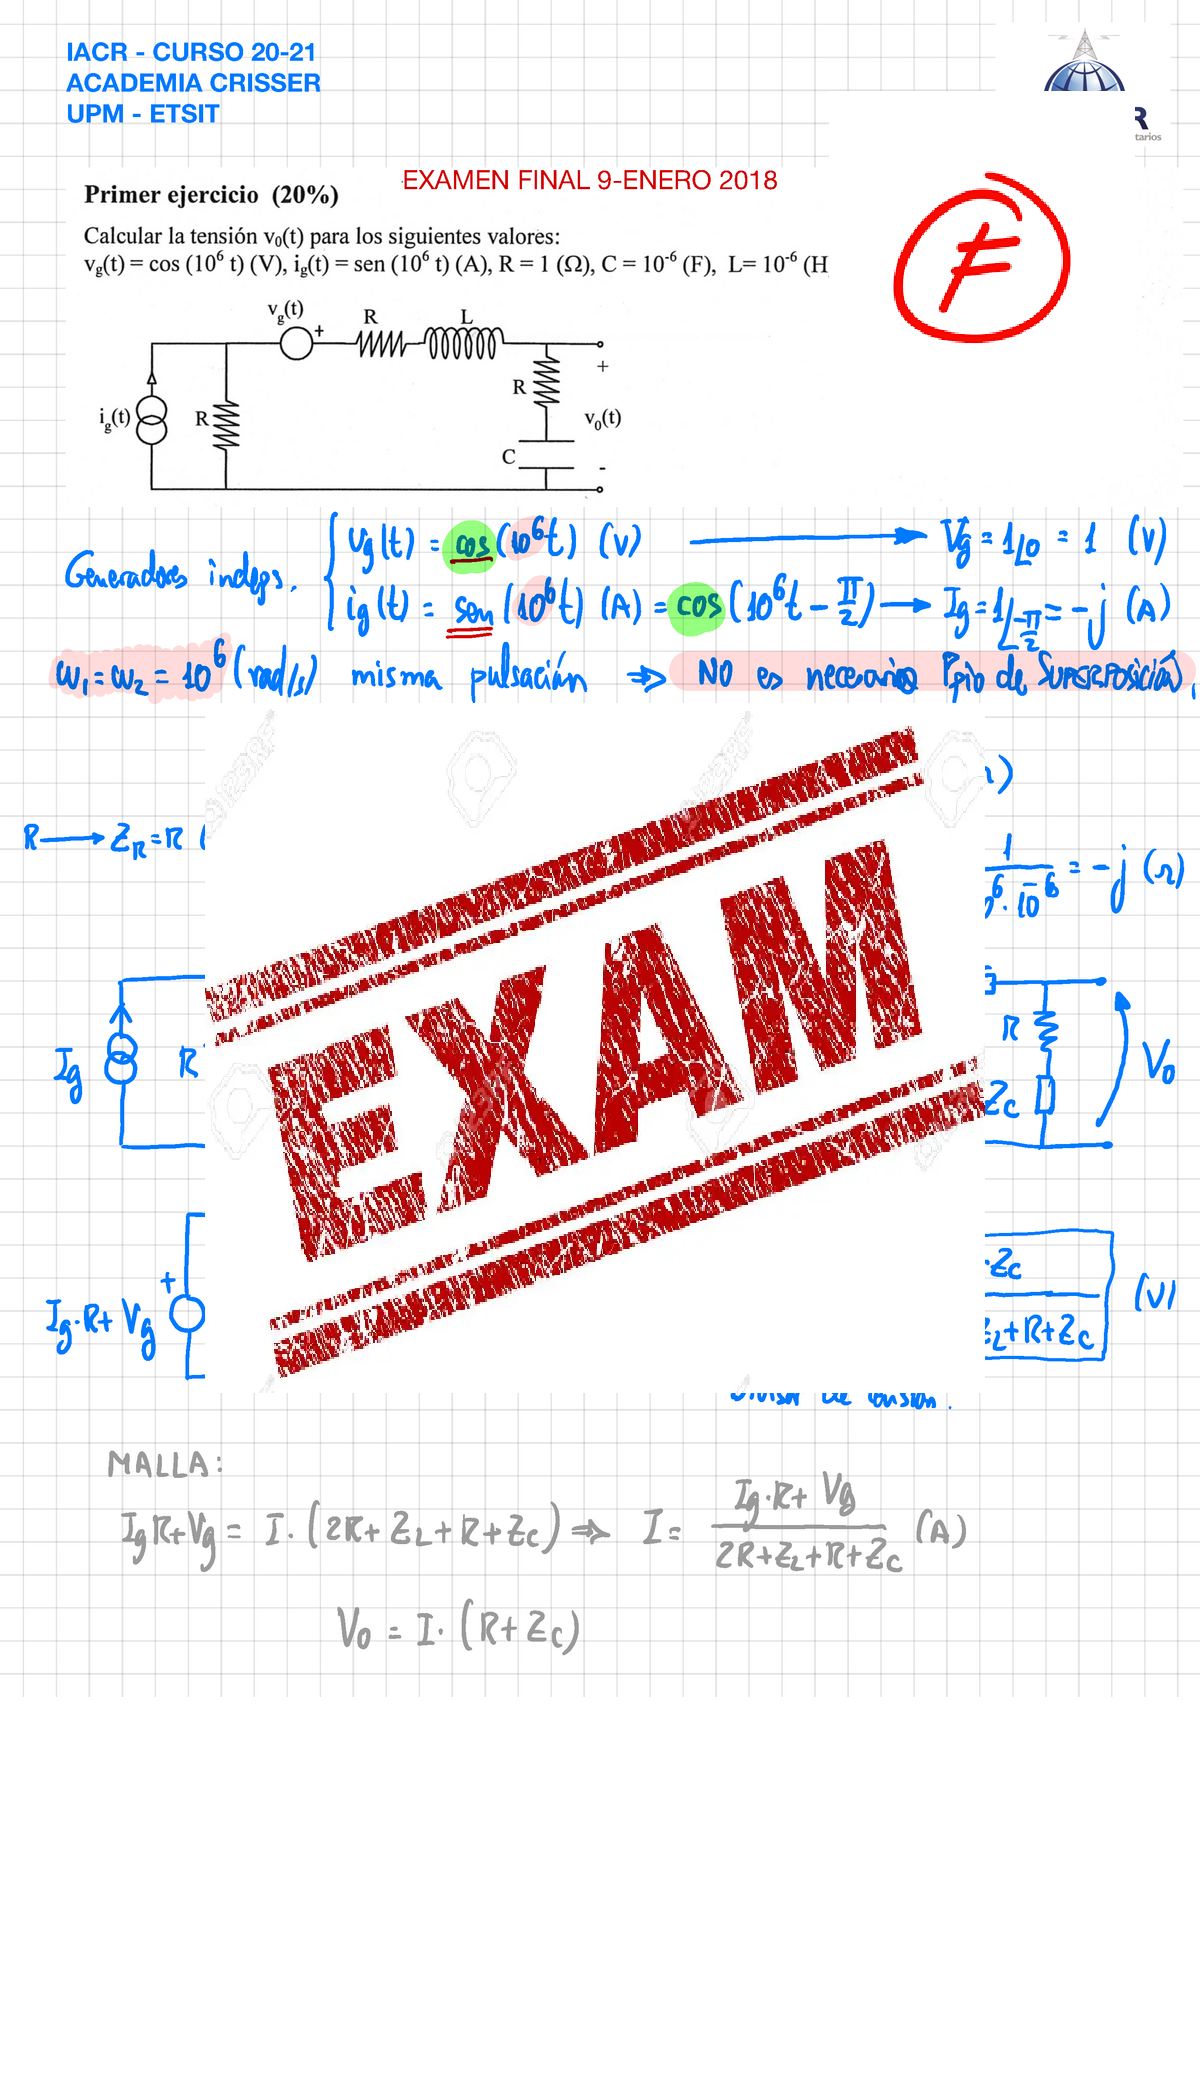 IACR - CURSO 20-21
ACADEMIA CRISSER
UPM - ETSIT
R
tarios
EXAMEN FINAL 9-ENERO 2018
Primer ejercicio (20%)
F
Calcular la tensión v₀(t) para los siguientes valores:
v_g(t) = cos (10⁶ t) (V), i_g(t) = sen (10⁶ t) (A), R = 1 (Ω), C = 10⁻⁶ (F), L= 10⁻⁶ (H
v_g(t)
+ R L
R +
i_g(t) R v₀(t)
C -
Generadores indeps. { v_g(t) = cos(10⁶t) (V) → V_g = 1∠0 = 1 (V)
i_g(t) = sen(10⁶t) (A) = cos(10⁶t - π/2) → I_g = 1∠-π/2 = -j (A)
ω₁ = ω₂ = 10⁶ (rad/s) misma pulsación ⇒ NO es necesario Ppio de SUPERPOSICIÓN.
R → Z_R = R (
1
= -j (Ω)
6 · 10⁻⁶
EXAM
I_g R
R
Z_C V₀
+
I_g·R + V_g
·Z_C
Z_L+R+Z_C (V)
divisor de tensión.
MALLA:
I_g R+V_g = I·(2R+Z_L+R+Z_C) ⇒ I = (I_g·R+V_g)/(2R+Z_L+R+Z_C) (A)
V₀ = I·(R+Z_C)